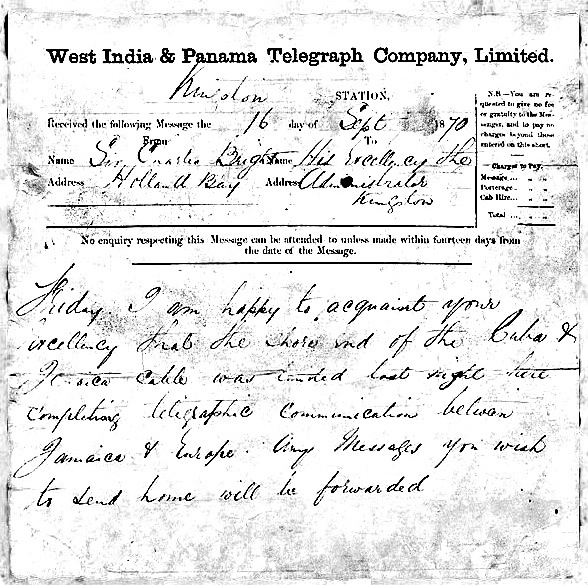 West India & Panama Telegraph Company, Limited.
Kingston STATION.
Received the following Message the 16 day of Sept 1870
From To
Name Sir Charles Bright Name His Excellency the
Address Holland Bay Address Administrator
Kingston
N.B.—You are re-
quested to give no fee
or gratuity to the Mes-
senger, and to pay no
charges beyond those
entered on this sheet.
Charges to Pay.
Message... „ „
Porterage.. „ „
Cab Hire... „ „
Total ... „ „
No enquiry respecting this Message can be attended to unless made within fourteen days from
the date of the Message.
Friday. I am happy to acquaint your
Excellency that the shore end of the Cuba &
Jamaica cable was landed last night here
completing telegraphic communication between
Jamaica & Europe. Any Messages you wish
to send home will be forwarded